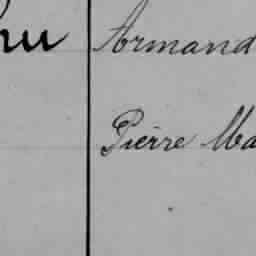 Armand
Pierre Ma